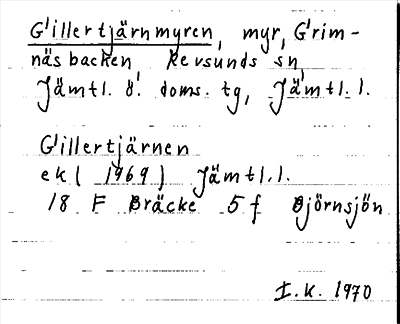 G'illertjärnmyren, myr, G'rim-
näsbacken Revsunds sn
Jämtl. ö. doms. tg, Jämtl. l.
G'illertjärnen
ek ( 1969 ) Jämtl. l.
18 F Bräcke 5 f Björnsjön
I. K. 1970